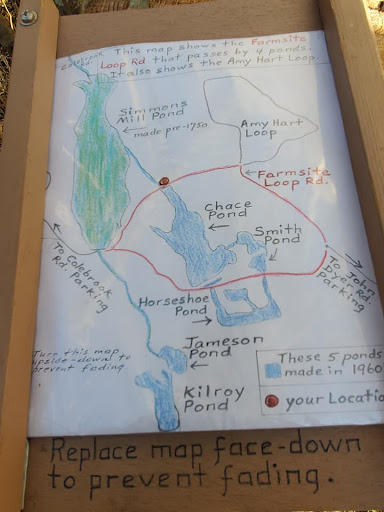 Colebrook Rd.
This map shows the Farmsite
Loop Rd that passes by 4 ponds.
It also shows the Amy Hart Loop.
Simmons
Mill Pond
made pre-1750
Amy Hart
Loop
Farmsite
Loop Rd.
Chace
Pond
Smith
Pond
To Colebrook
Rd. Parking
To John
Dyer Rd.
parking
Horseshoe
Pond
Jameson
Pond
Turn this map
upside-down to
prevent fading
Kilroy
Pond
These 5 ponds
made in 1960
your Locatio
Replace map face-down
to prevent fading.